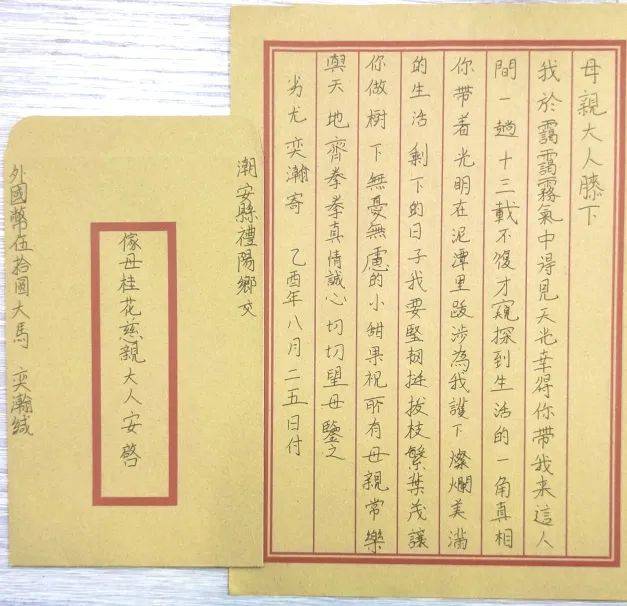 母親大人膝下
我於靄靄霧氣中得見天光幸得你帶我來這人
間一趟十三載不復才窺探到生活的一角真相
你帶着光明在泥潭里跋涉為我護下燦爛美滿
的生活剩下的日子我要堅韌挺拔枝繁葉茂讓
你做樹下無憂無慮的小甜果祝所有母親常樂
與天地齊拳拳真情誠心切切望母鑒之
男尤奕瀚寄 乙酉年八月二五日付
潮安縣禮陽鄉交
傢母桂花慈親大人安啓
外國幣伍拾國大馬 奕瀚緘